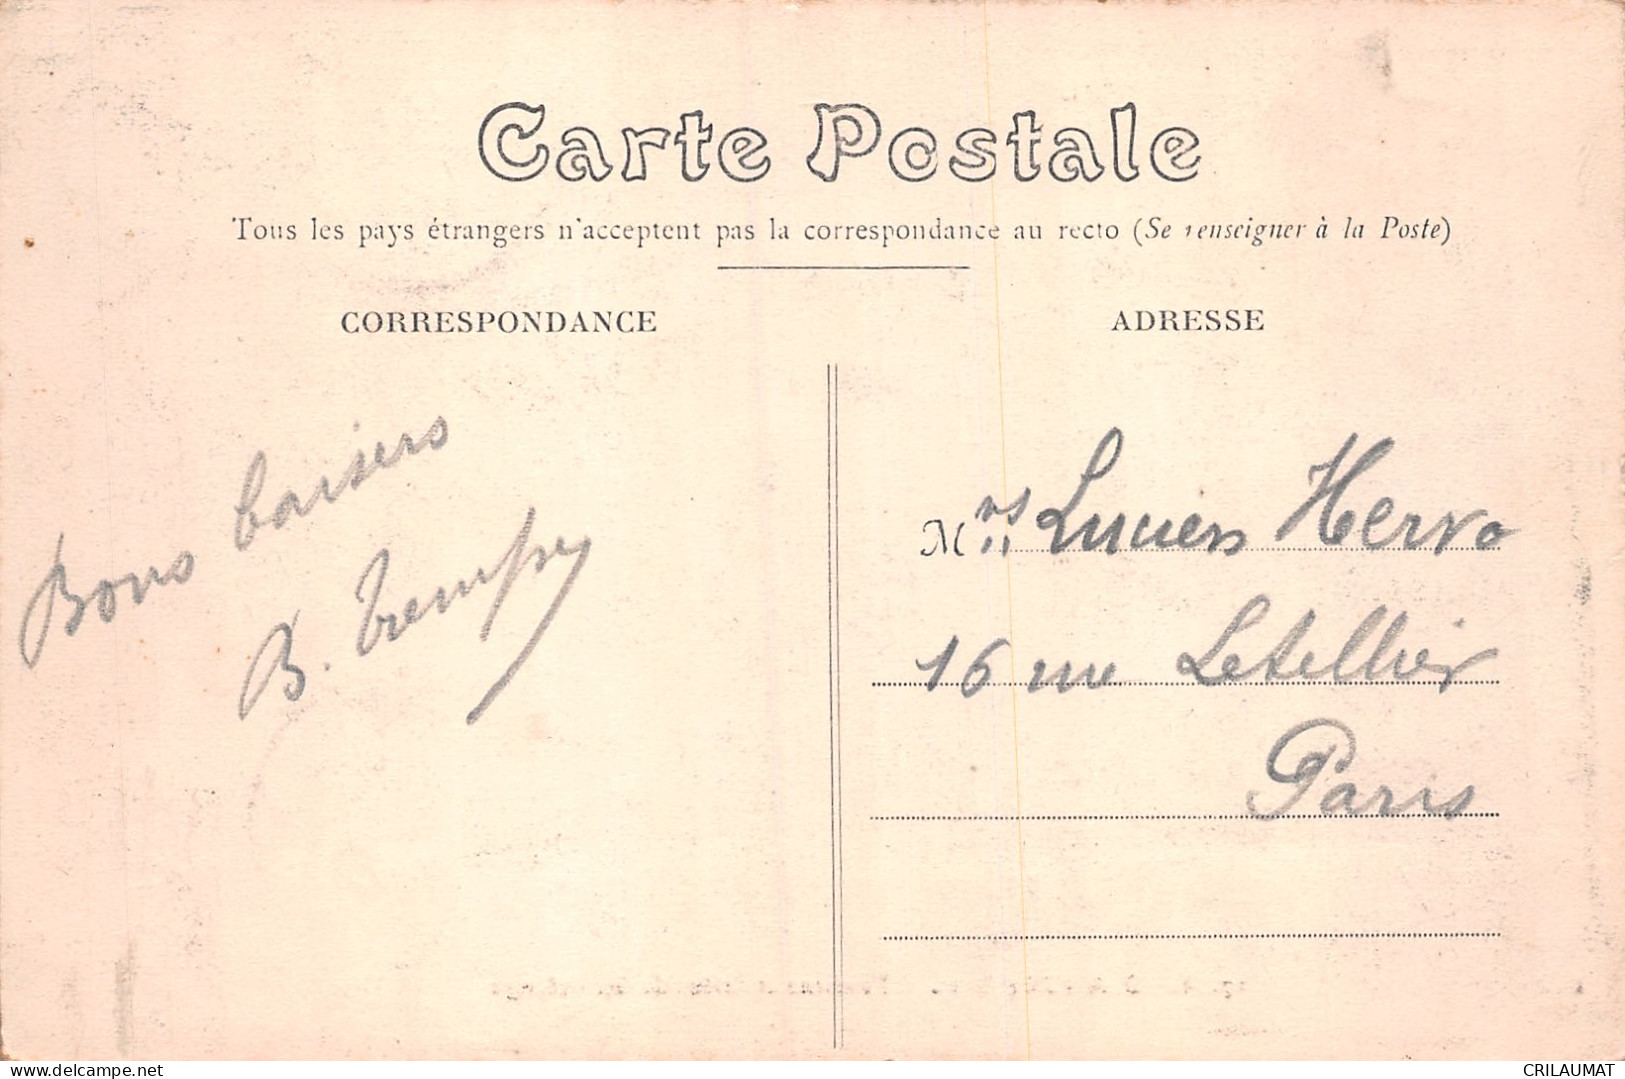 Carte Postale
Tous les pays étrangers n'acceptent pas la correspondance au recto (Se renseigner à la Poste)
CORRESPONDANCE
ADRESSE
Bons baisers
B. Trempsy
Mrs Lucien Hervo
16 rue Letellier
Paris
www.delcampe.net
CRILAUMAT